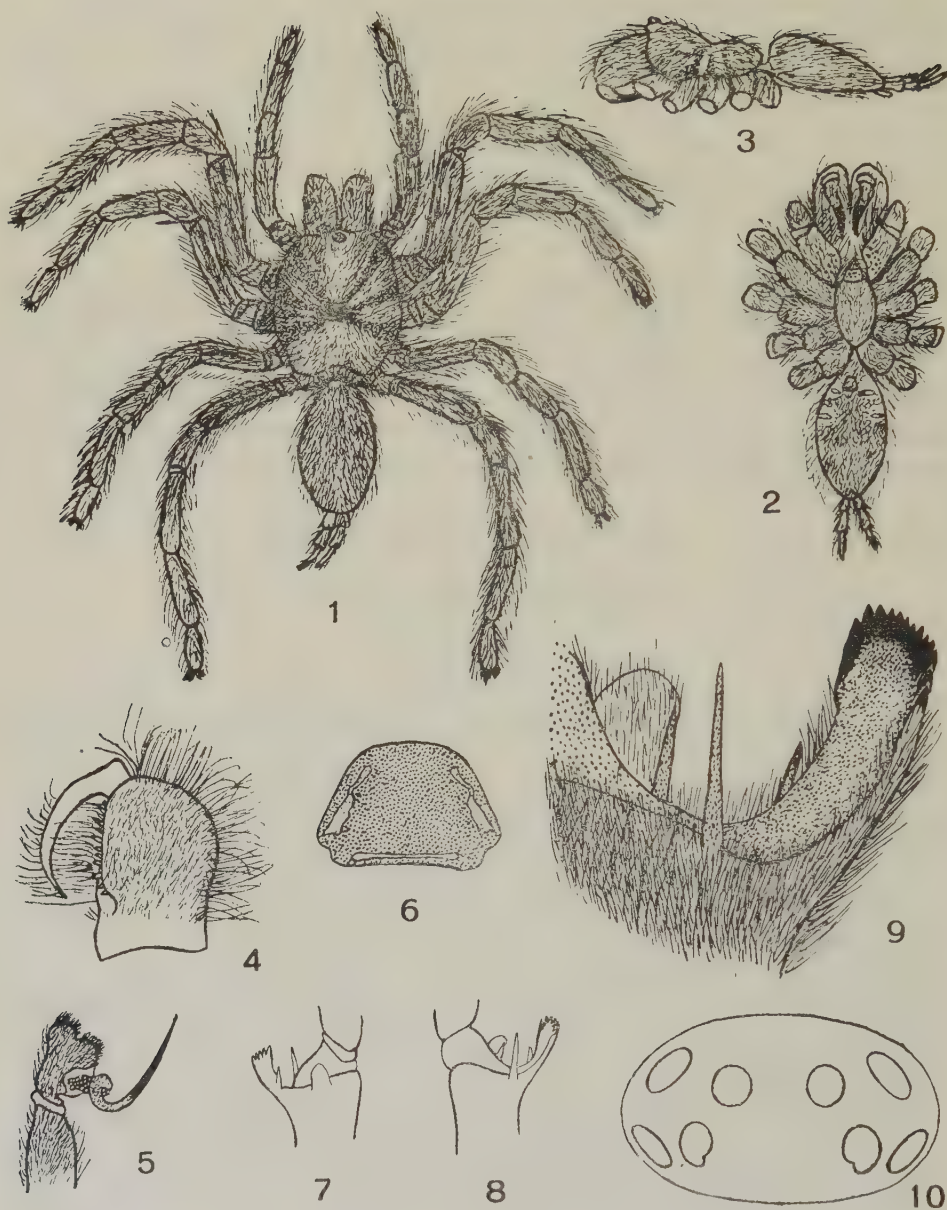 3
2
1
6
9
4
5
7
8
10